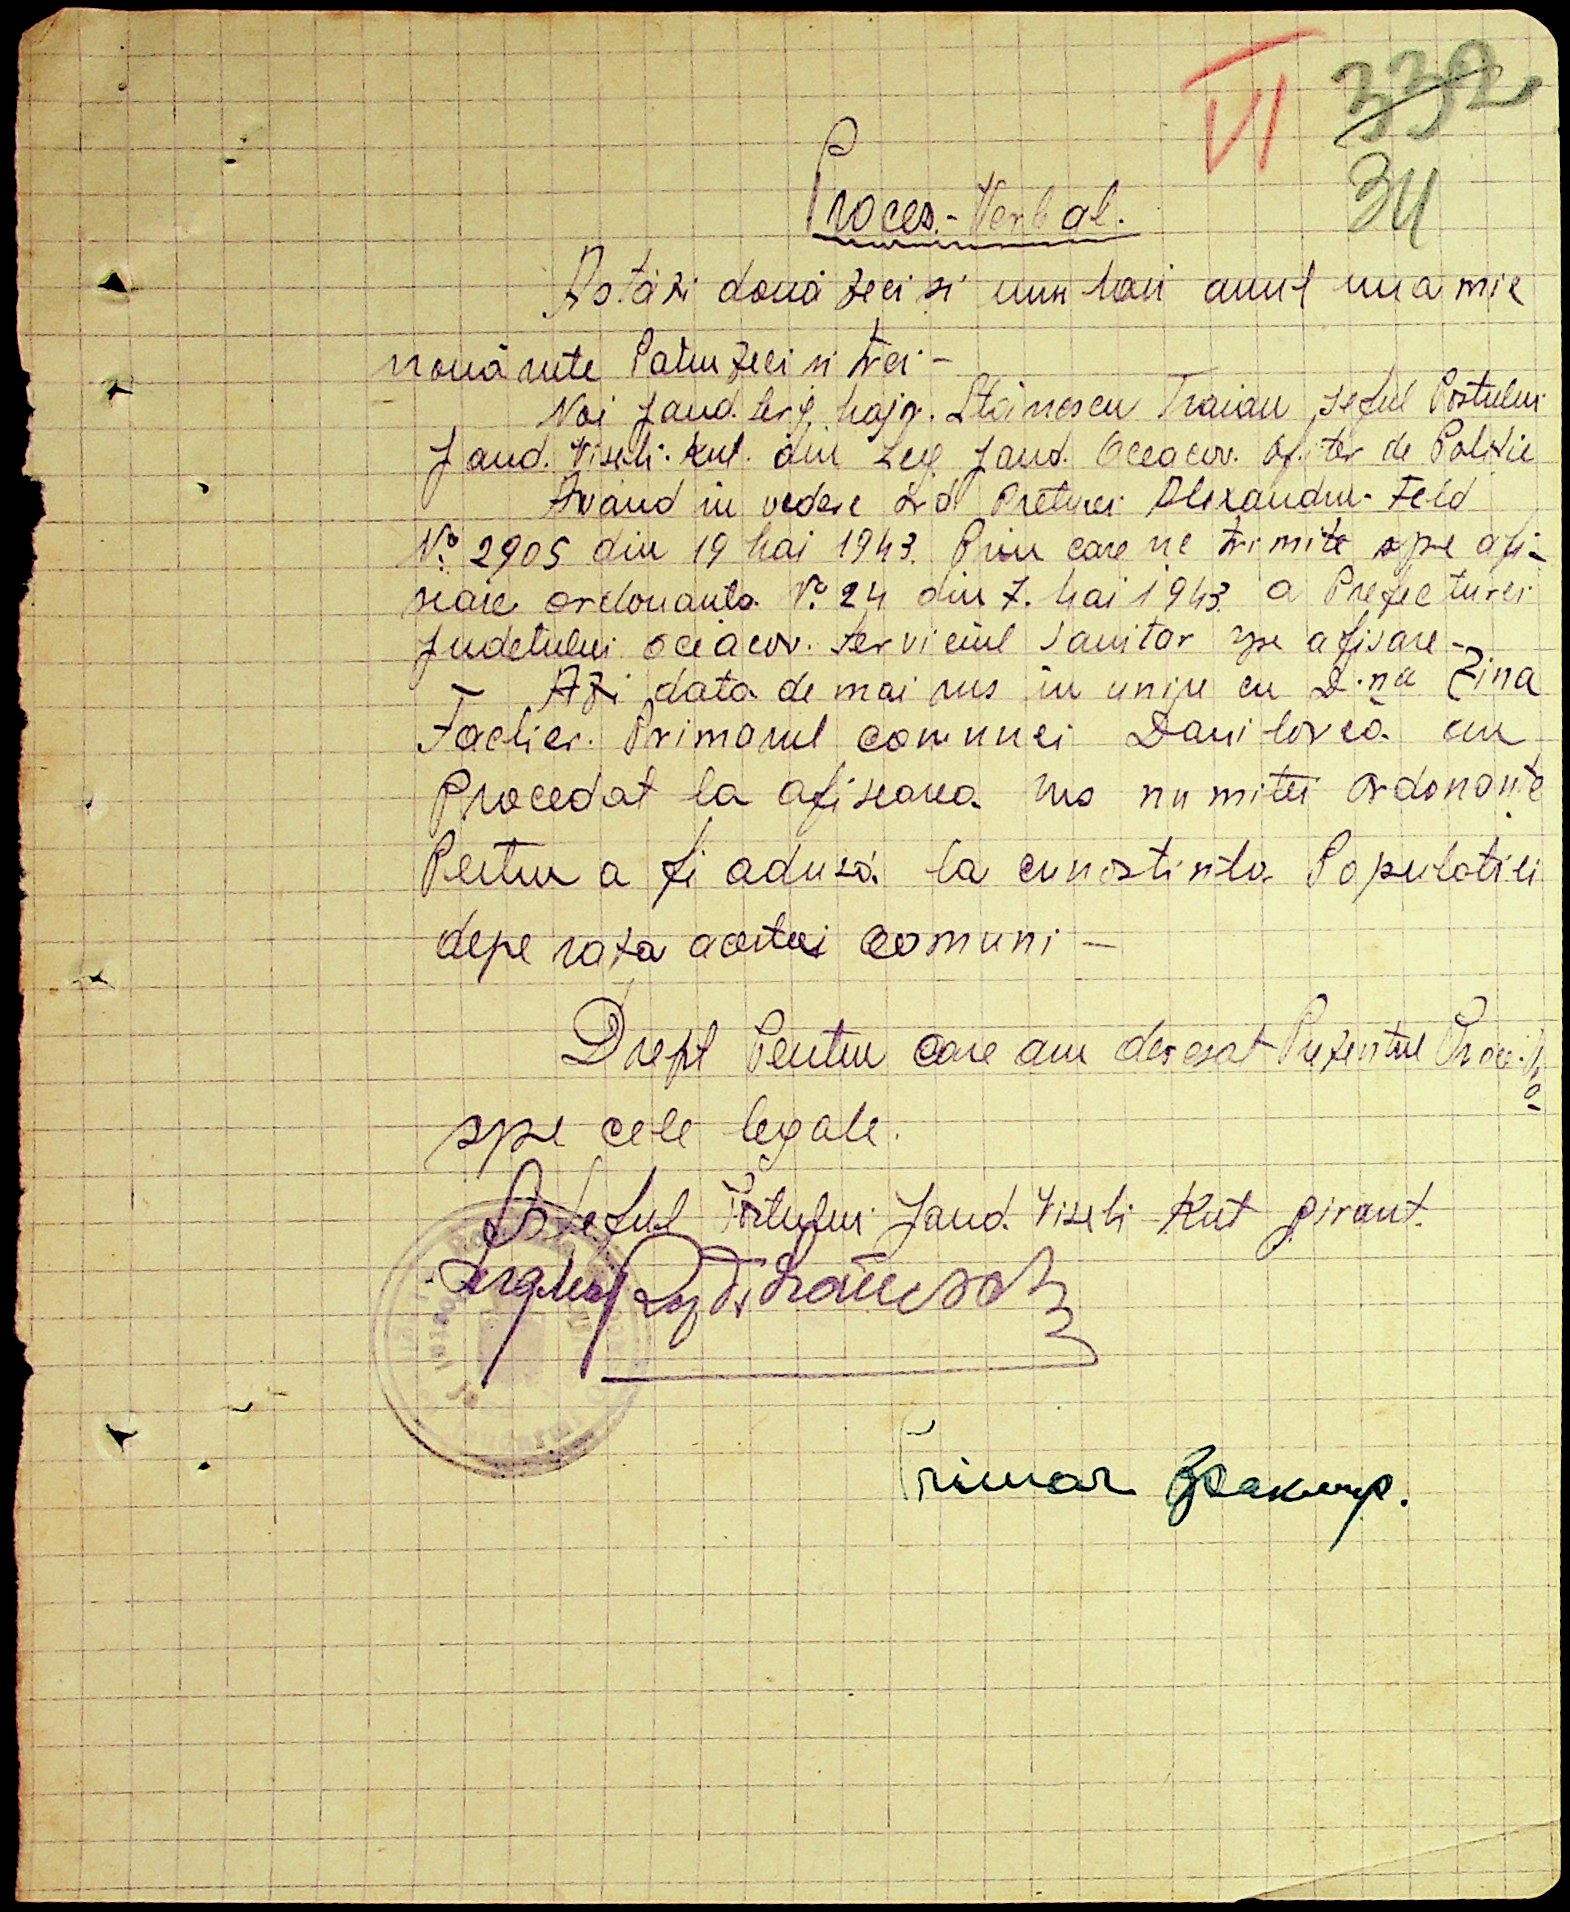 VI 332
34
Proces-Verbal.
Astăzi două zeci si unu Mai anul una mie
nouă sute Patru zeci si trei -
Noi Jand. Serg. Major. Stănescu Traian seful Postului
Jand. Viseli. Kut. din Leg Jand. Oceacov. Ofiter de Politie
Având in vedere Ord Preturei Alexandru-Feld
No 2905 din 19 Mai 1943. Prin care ne trimite spre afi-
seare ordonanta No 24 din 7. Mai 1943. a Prefecturei
Judetului Oceacov. Serviciul Sanitar spre afisare -
- Azi data de mai sus in unire cu D.na Zina
Primarul comunei Danilovca am
Procedat la afisearea sus numitei ordonante
Pentru a fi adusă la cunostinta Populatiei
depe raza acestei comuni -
Drept Pentru care am dresat Prezentul Proces
spre cele legale.
Seful Postului Jand. Viseli Kut girant.
Primar